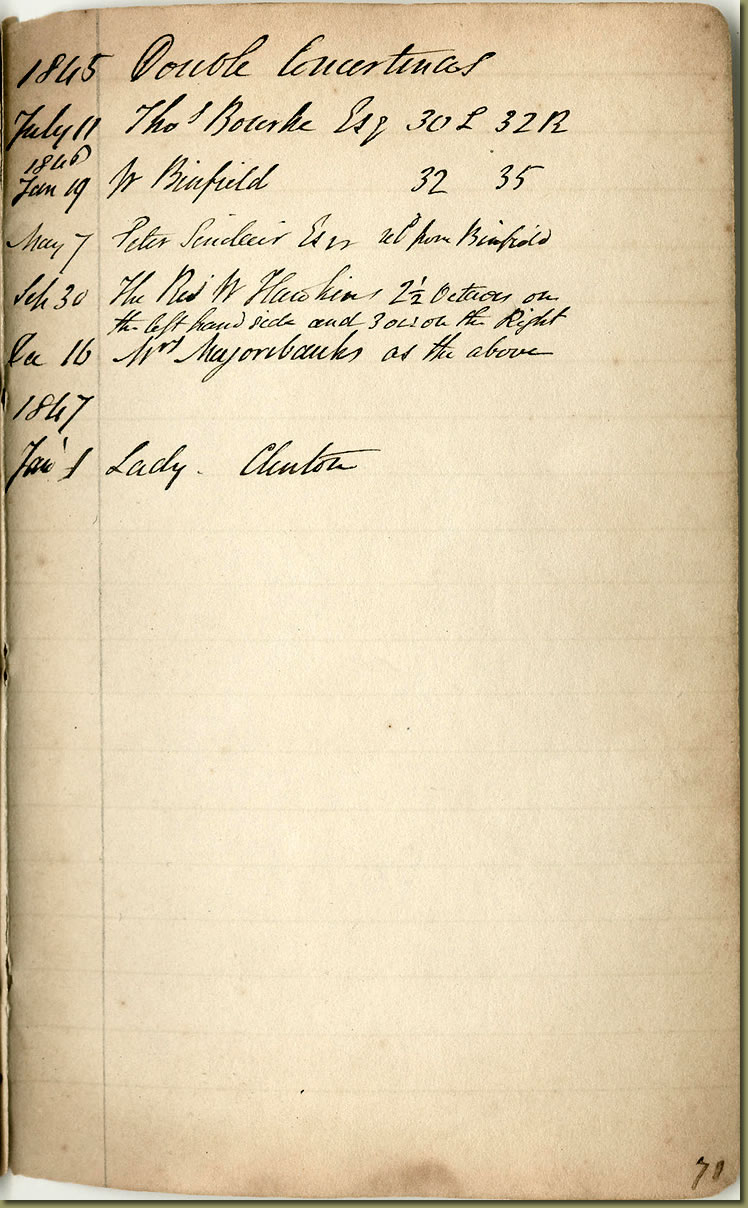 1845 Double Concertinas
July 11 Thos Bourke Esq 30 L 32 R
1846
Jan 19 W Binfield 32 35
May 7 Peter Sinclair Esqr retd from Binfield
Sep 30 The Revd W Hawkins 2½ Octaves on
the left hand side and 3 Octs on the Right
Dec 16 Mrs Majoribanks as the above
1847
Jan 1 Lady Clinton